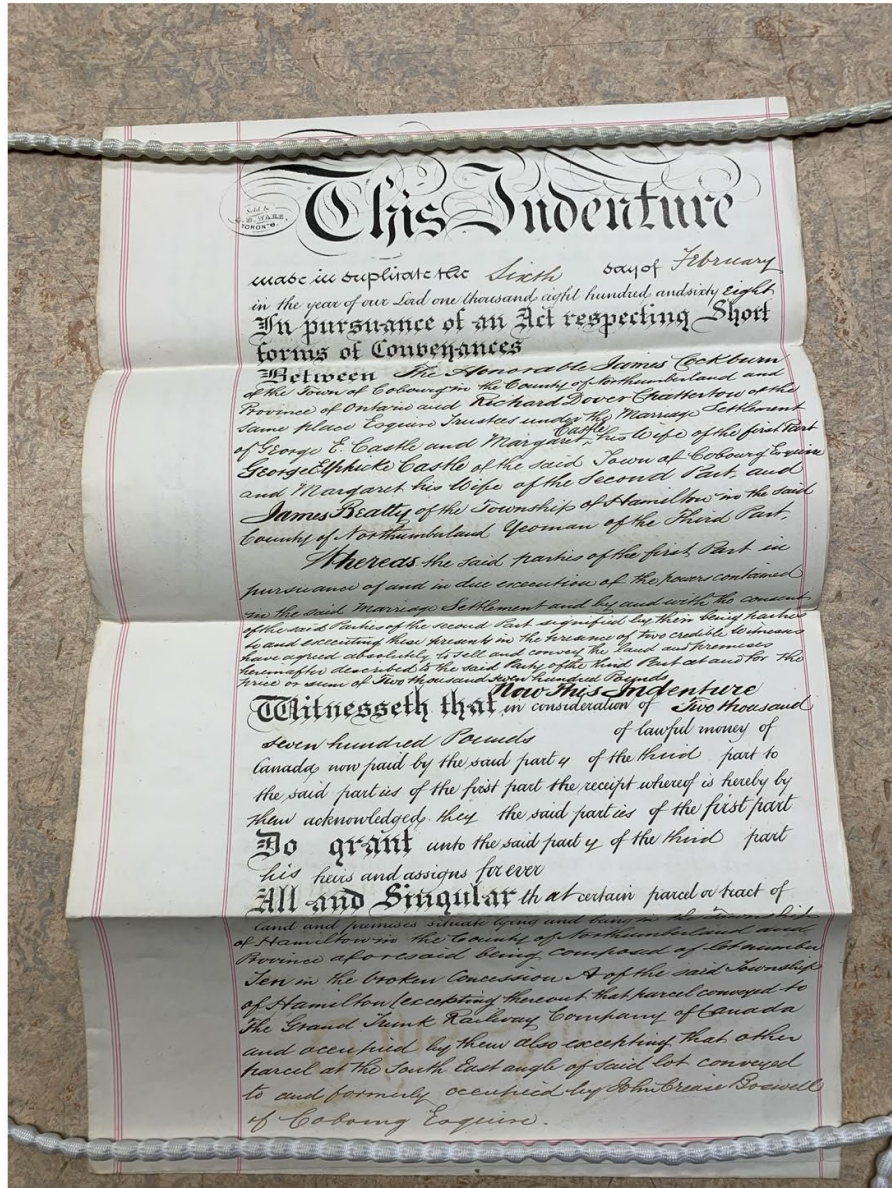 This Indenture
Sold by
WARE,
TORONTO.
made in duplicate the Sixth day of February
in the year of our Lord one thousand eight hundred and sixty eight
In pursuance of an Act respecting Short
forms of Conveyances
Between The Honorable James Cockburn
of the Town of Cobourg in the County of Northumberland and
Province of Ontario and Richard Dover Chatterton of the
same place Esquire Trustees under the Marriage Settlement
of George E. Castle and Margaret Castle, his Wife of the first Part
George Elphicke Castle of the said Town of Cobourg Esquire
and Margaret his Wife of the Second Part and
James Beatty of the Township of Hamilton in the said
County of Northumberland Yeoman of the Third Part.
Whereas the said parties of the first Part in
pursuance of and in due execution of the powers contained
in the said Marriage Settlement and by and with the consent
of the said Parties of the second Part signified by their being parties
to and executing these presents in the presence of two credible Witnesses
have agreed absolutely to sell and convey the land and premises
hereinafter described to the said Party of the third Part at and for the
price or sum of Two thousand seven hundred Pounds
Now This Indenture
Witnesseth that in consideration of Two thousand
seven hundred Pounds of lawful money of
Canada now paid by the said party of the third part to
the said parties of the first part the receipt whereof is hereby by
them acknowledged they the said parties of the first part
Do grant unto the said party of the third part
his heirs and assigns for ever
All and Singular that certain parcel or tract of
land and premises situate lying and being in the Township
of Hamilton in the County of Northumberland and
Province aforesaid being composed of Lot number
Ten in the broken Concession A of the said Township
of Hamilton (excepting thereout that parcel conveyed to
The Grand Trunk Railway Company of Canada
and occupied by them also excepting that other
parcel at the South East angle of said lot conveyed
to and formerly occupied by John Crease Boswell
of Cobourg Esquire.